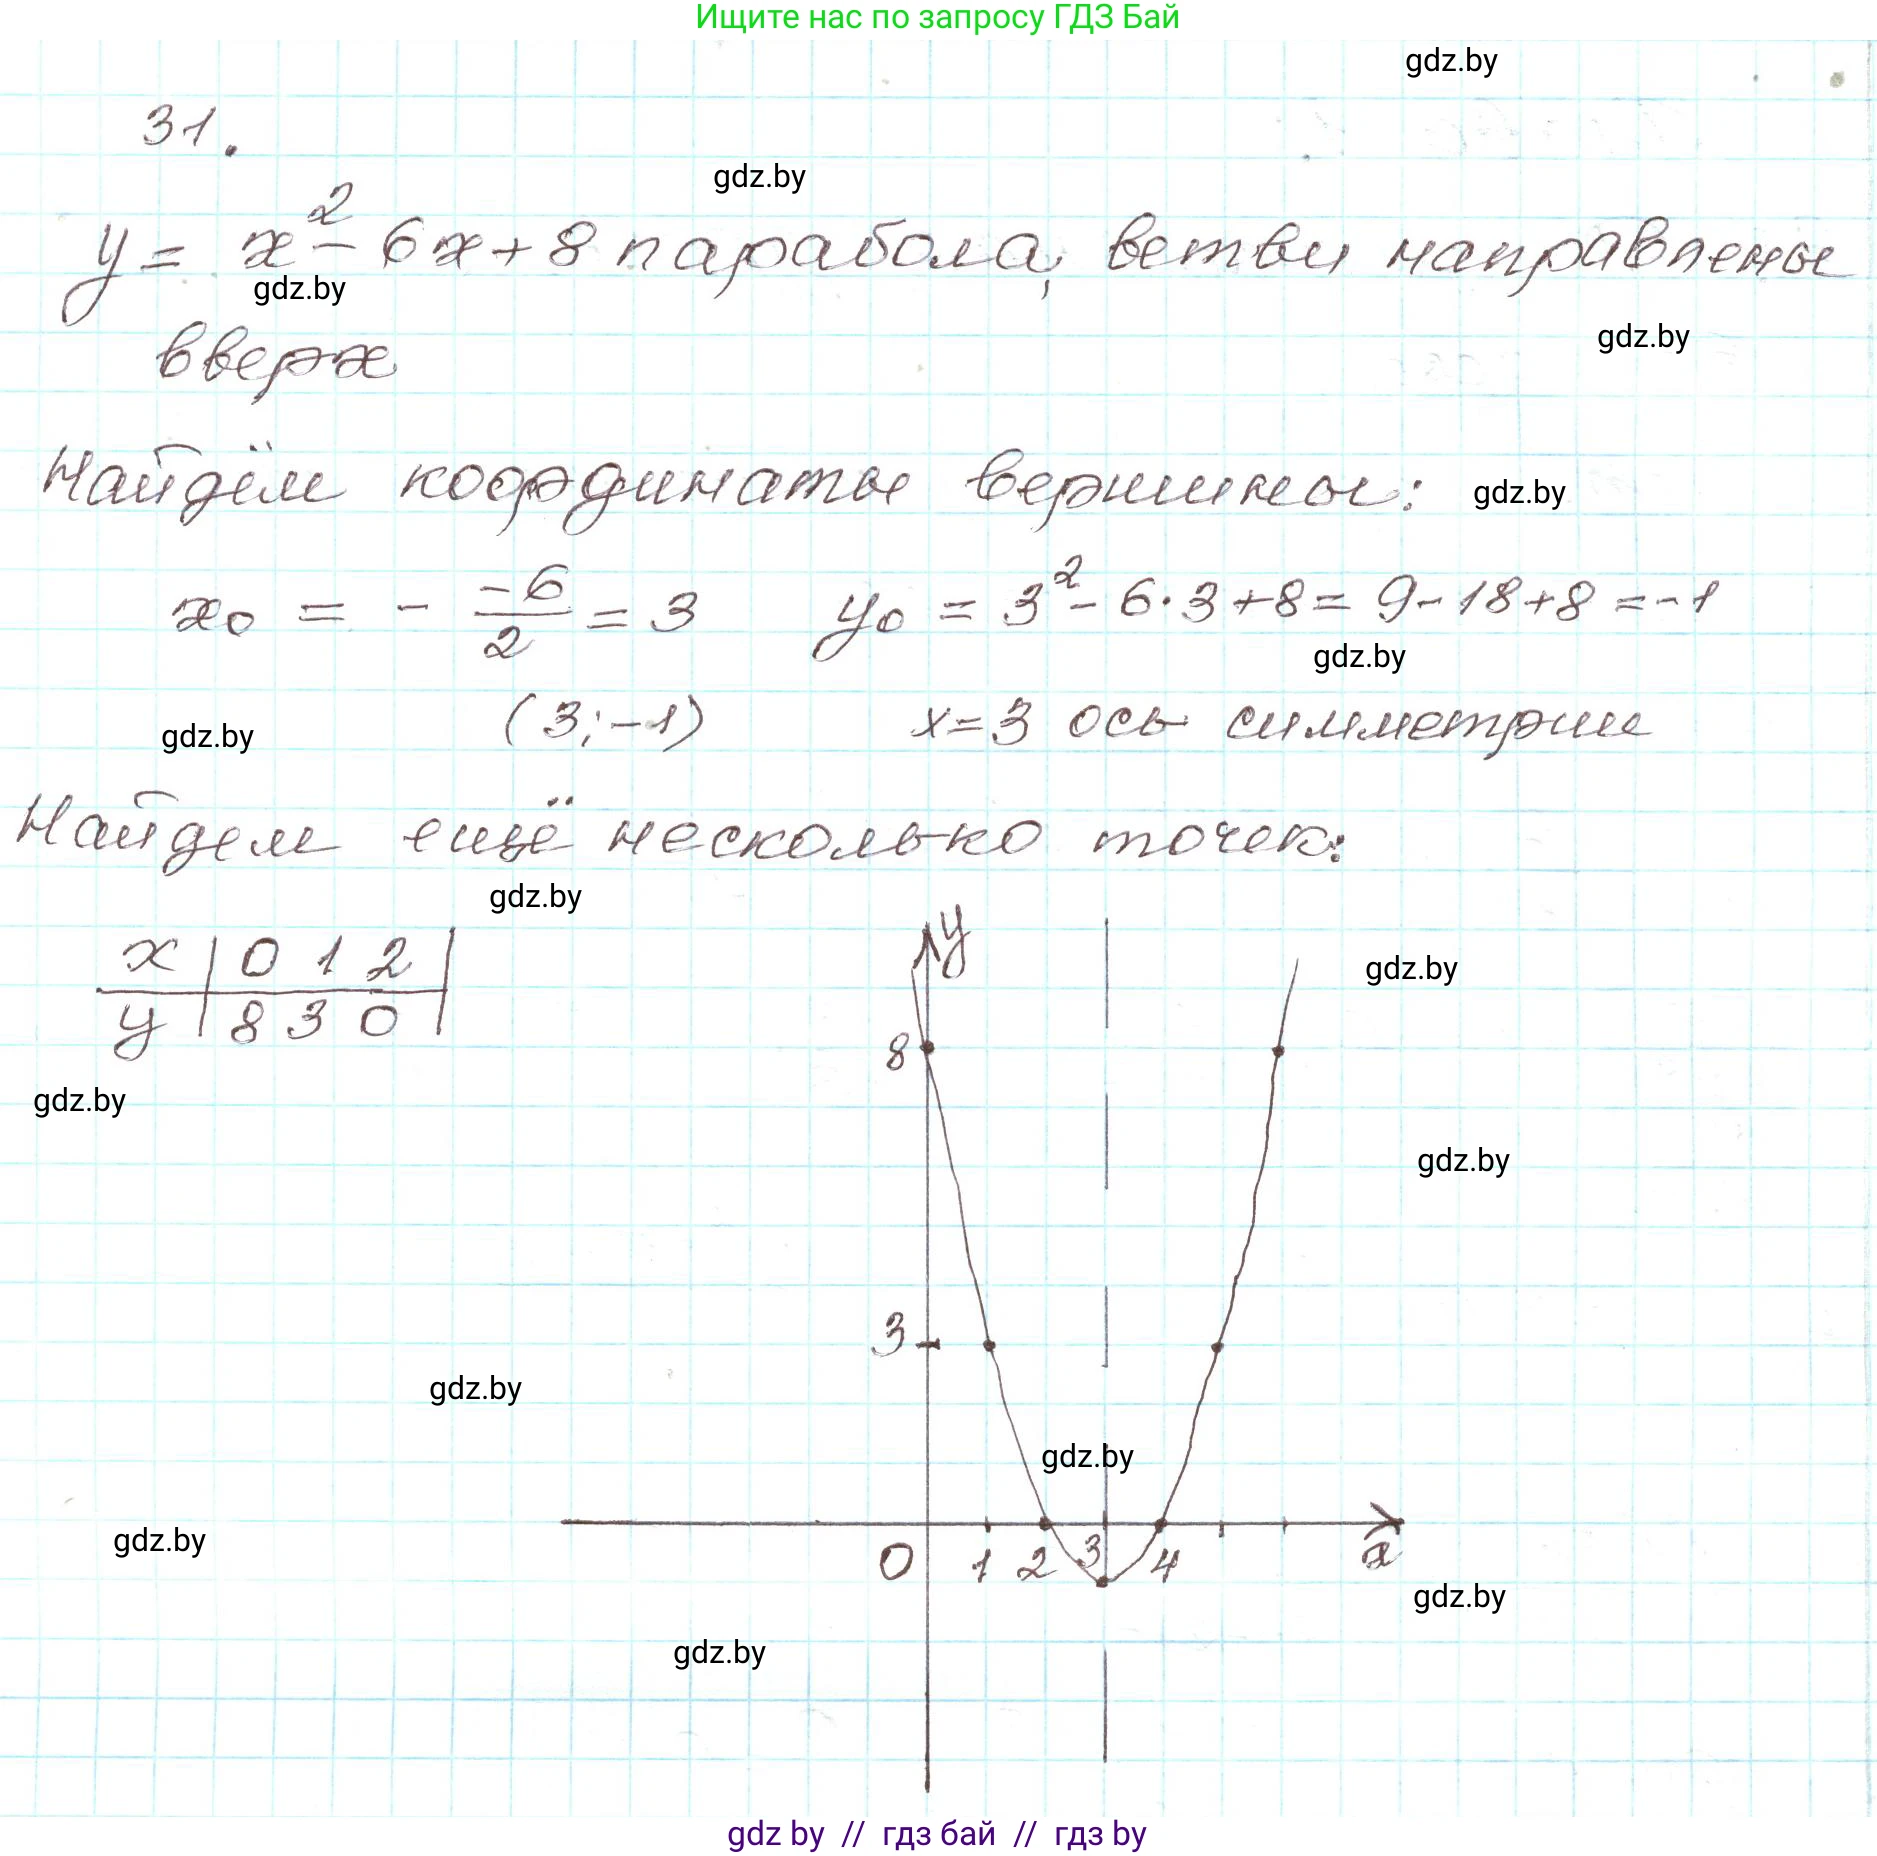 Ищите нас по запросу ГДЗ Бай
gdz.by
31.
gdz.by
y = x² - 6x + 8 парабола, ветви направлены
gdz.by
вверх
gdz.by
Найдём координаты вершины:
gdz.by
x₀ = - -6/2 = 3 y₀ = 3² - 6·3+8 = 9-18+8 = -1
gdz.by
(3; -1) x=3 ось симметрии
gdz.by
Найдем ещё несколько точек:
gdz.by
x | 0 1 2 |
y | 8 3 0 |
y
gdz.by
8
gdz.by
gdz.by
3
gdz.by
gdz.by
gdz.by
0 1 2 3 4 x
gdz.by
gdz.by
gdz by // гдз бай // гдз by